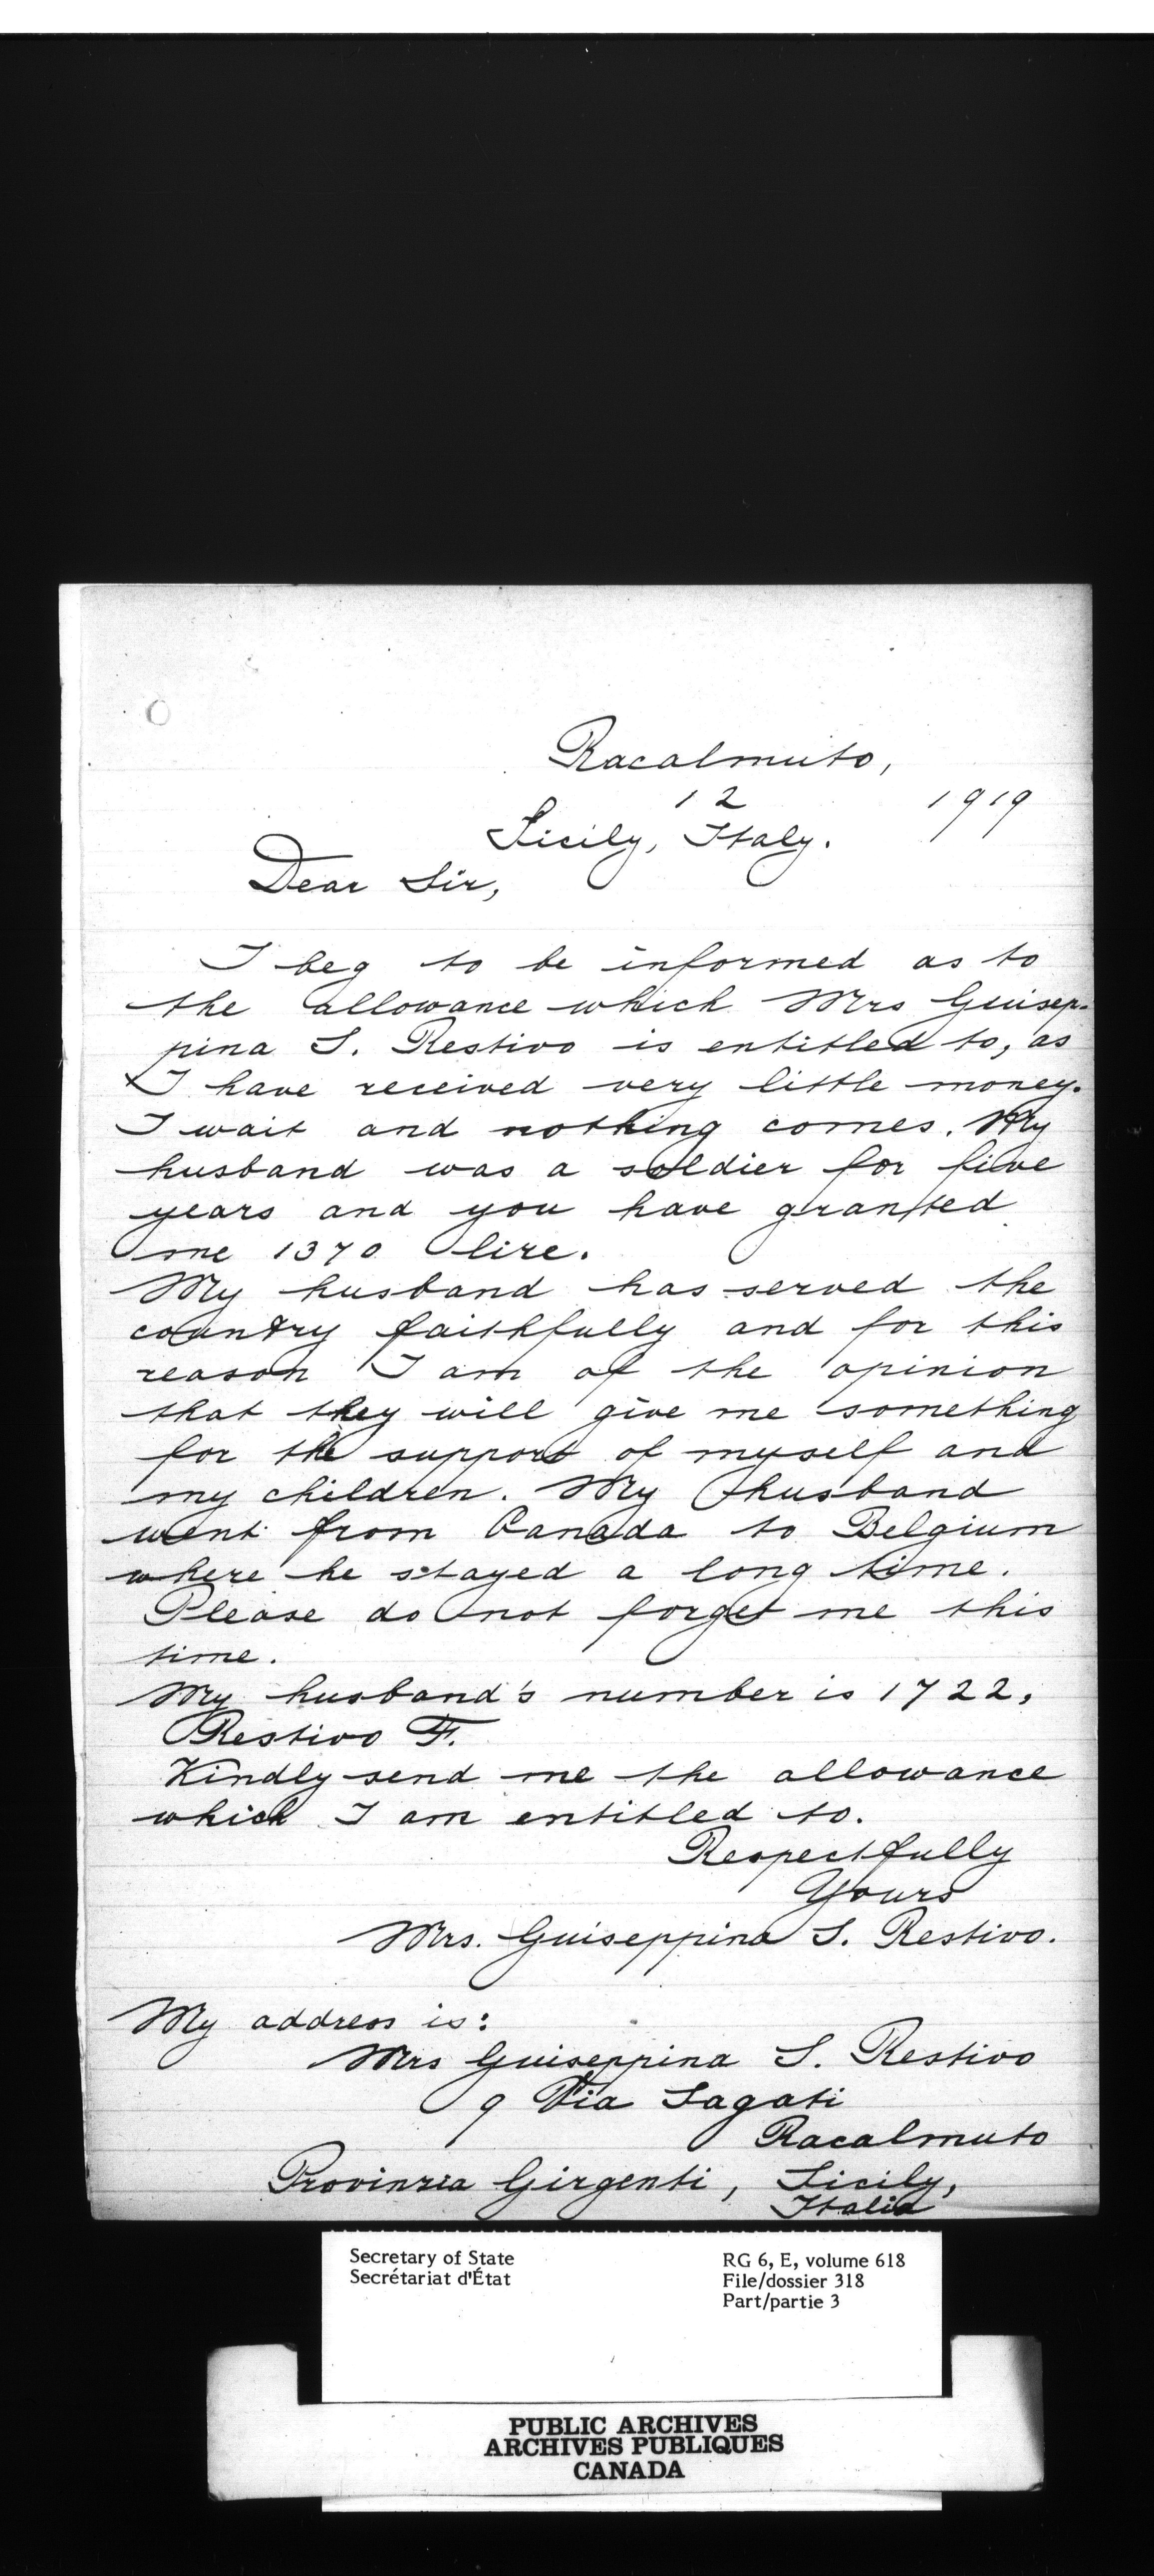 Racalmuto,
12 1919
Sicily, Italy.
Dear Sir,
I beg to be informed as to
the allowance which Mrs Guisep-
pina S. Restivo is entitled to, as
I have received very little money.
I wait and nothing comes. My
husband was a soldier for five
years and you have granted
me 1370 lire.
My husband has served the
country faithfully and for this
reason I am of the opinion
that they will give me something
for the support of myself and
my children. My husband
went from Canada to Belgium
where he stayed a long time.
Please do not forget me this
time.
My husband's number is 1722,
Restivo F.
Kindly send me the allowance
which I am entitled to.
Respectfully
Yours
Mrs. Guiseppina S. Restivo.
My address is:
Mrs Guiseppina S. Restivo
9 Via Sagati
Racalmuto
Provinzia Girgenti, Sicily,
Italia
Secretary of State
Secrétariat d'État
RG 6, E, volume 618
File/dossier 318
Part/partie 3
PUBLIC ARCHIVES
ARCHIVES PUBLIQUES
CANADA